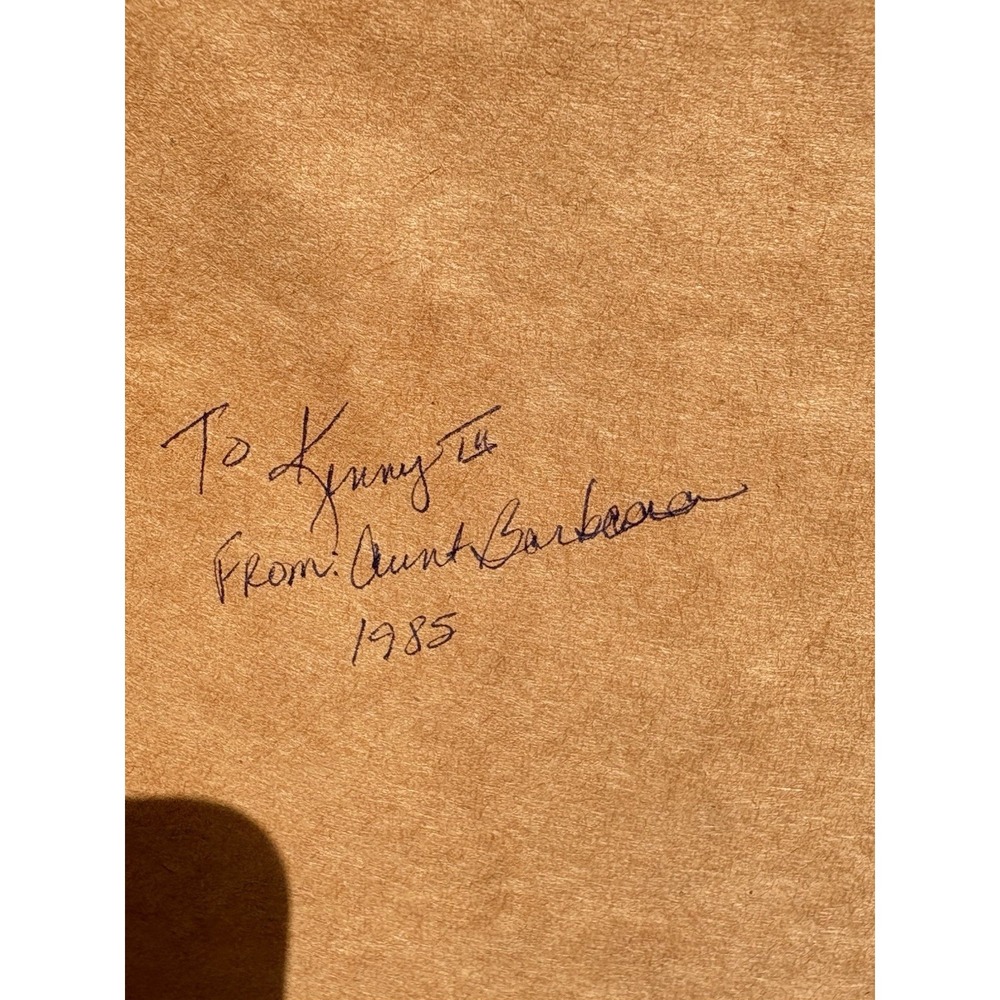 To Kenny III
From: Aunt Barbara
1985